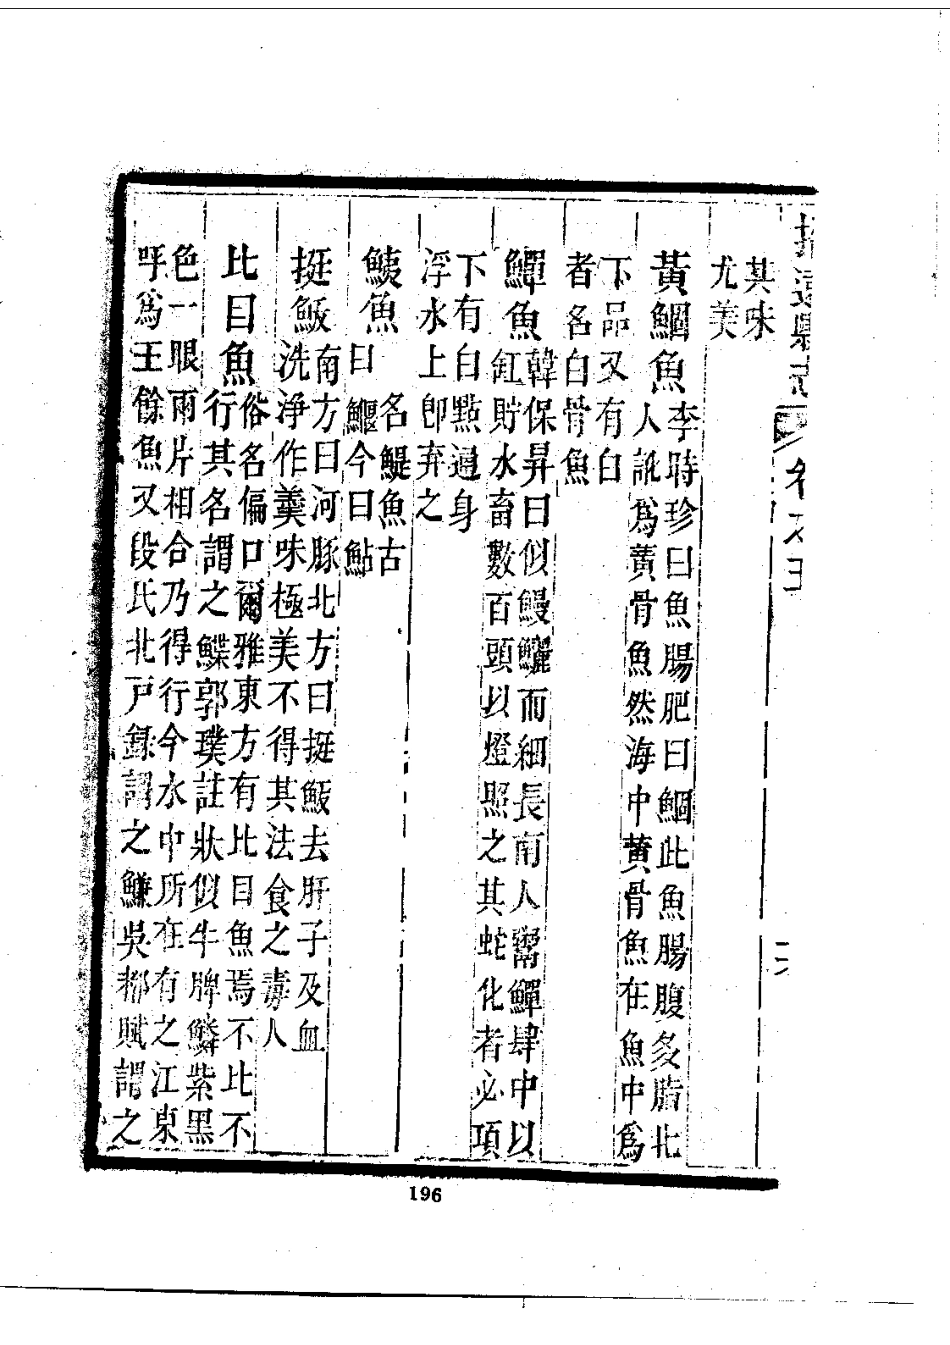 招遠縣志　卷之五
其味
尤美
黃鯝魚李時珍曰魚腸肥曰鯝此魚腸腹多脂北
人訛爲黃骨魚然海中黃骨魚在魚中爲
下品又有白
者名白骨魚
鱓魚韓保昇曰似鰻鱺而細長南人鬻鱓肆中以
缸貯水畜數百頭以燈照之其蛇化者必項
下有白點通身
浮水上卽弃之
鮧魚名鯷魚古
曰鰋今曰鮎
挺鮁南方曰河豚北方曰挺鮁去肝子及血
洗淨作羹味極美不得其法食之毒人
比目魚俗名偏口爾雅東方有比目魚焉不比不
行其名謂之鰈郭璞註狀似牛脾鱗紫黑
色一眼兩片相合乃得行今水中所在有之江東
呼爲王餘魚又段氏北戸錄謂之鰜吳都賦謂之
196